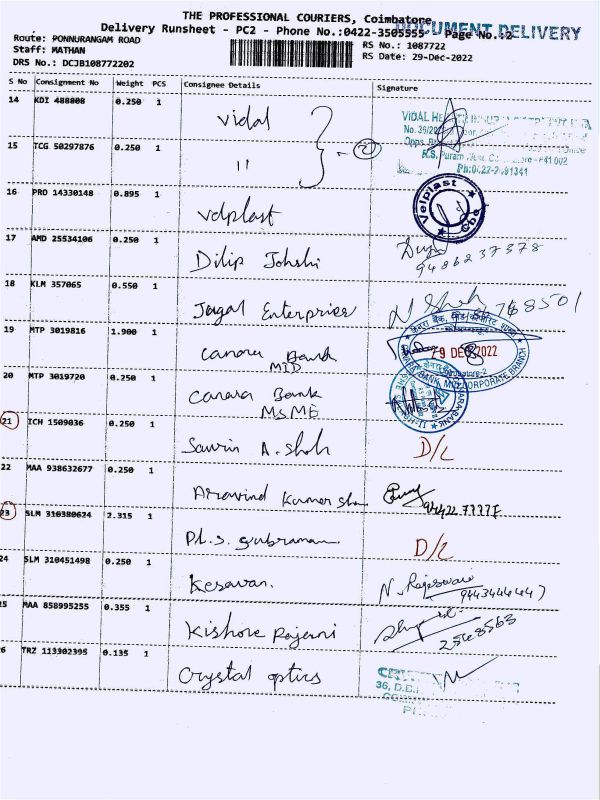 THE PROFESSIONAL COURIERS, Coimbatore
DOCUMENT DELIVERY
Delivery Runsheet - PC2 - Phone No.:0422-3505555 Page No.:2
Route: PONNURANGAM ROAD
RS No.: 1087722
Staff: MATHAN
RS Date: 29-Dec-2022
DRS No.: DCJB108772202
S No Consignment No Weight PCS Consignee Details Signature
14 KDI 488808 0.250 1 Vidal
15 TCG 50297876 0.250 1 "
2
VIDAL
R.S. Puram
Ph:0422-2491341
16 PRO 14330148 0.895 1 velplast
Velplast Cbe
17 AMD 25534106 0.250 1 Dilip Johshi
9486237378
18 KLM 357065 0.550 1 Jagal Enterprises
19 MTP 3019816 1.900 1 Canara Bank
MID
29 DEC 2022
20 MTP 3019720 0.250 1 Canara Bank
MSME
21 ICH 1509036 0.250 1 Saurin A. Shah D/L
22 MAA 938632677 0.250 1 Aravind Kumar
23 SLM 310380624 2.315 1 PL.S. Subraman D/L
24 SLM 310451498 0.250 1 Kesavan. N. Rajeswari
9443444447
25 MAA 858995255 0.355 1 Kishore Rajani
2548563
26 TRZ 113302395 0.135 1 Crystal optics